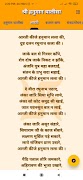 श्री हनुमान चालीसा
आरती कीजै हनुमान लला की।
दुष्ट दलन रघुनाथ कला की॥
जाके बल से गिरिवर कांपे।
रोग दोष जाके निकट न झांके॥
अंजनि पुत्र महा बलदाई।
सन्तन के प्रभु सदा सहाई॥
आरती कीजै हनुमान लला की।
दे बीरा रघुनाथ पठाए।
लंका जारि सिया सुधि लाए॥
लंका सो कोट समुद्र सी खाई।
जात पवनसुत बार न लाई॥
आरती कीजै हनुमान लला की।
लंका जारि असुर संहारे।
सियारामजी के काज सवारे॥
लक्ष्मण मूर्छित पड़े सकारे।
आनि संजीवन प्राण उबारे॥
आरती कीजै हनुमान लला की।
पैठि पाताल तोरि जमकारे।
अहिरावण की भुजा उखारे॥